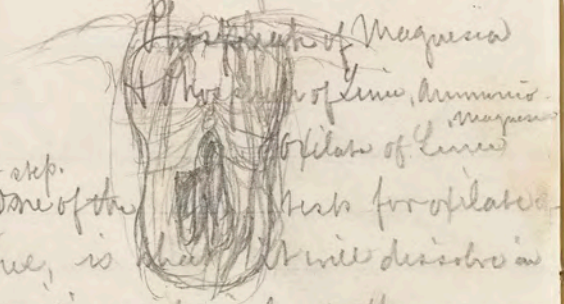 Phosphate of Magnesia
+ Phosphate of Lime, Ammonio-
Magnesia
Oxilate of Lime
step.
of the tests for oxilate
is that it will dissolve in